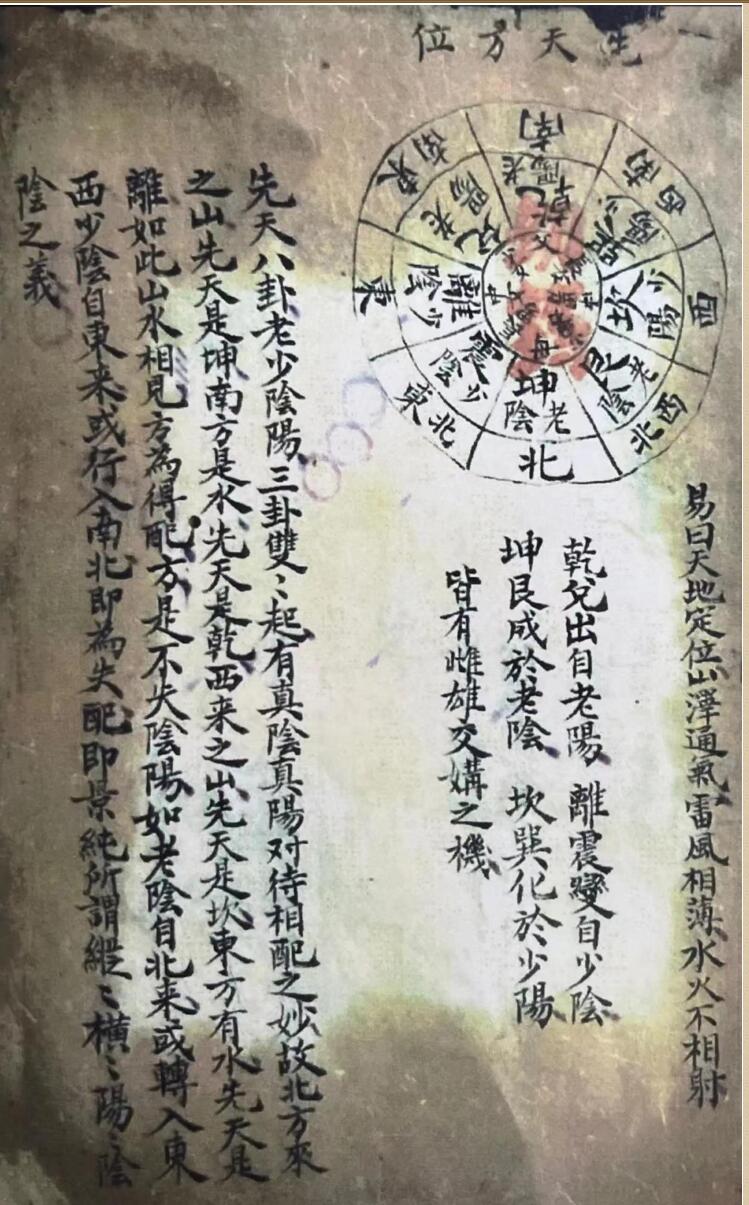 先天方位
易曰天地定位山澤通氣雷風相薄水火不相射
乾兌出自老陽 離震變自少陰
坤艮成於老陰 坎巽化於少陽
皆有雌雄交媾之機
南
西南
西
西北
北
東北
東
東南
乾老陽
巽少陽
坎少陽
艮老陰
坤老陰
震少陰
離少陰
兌老陽
父
母
先天八卦老少陰陽三卦雙〻起有真陰真陽对待相配之妙故北方來
之山先天是坤南方是水先天是乾西来之山先天是坎東方有水先天是
離如此山水相見方為得配方是不失陰陽如老陰自北来或轉入東
西少陰自東来或行入南北即為失配即景純所謂縱〻橫〻陽〻陰
陰之義